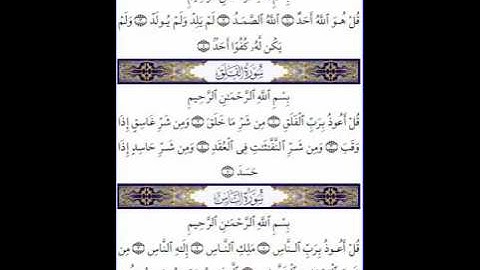 بِسْمِ ٱللَّهِ ٱلرَّحْمَٰنِ ٱلرَّحِيمِ
قُلْ هُوَ ٱللَّهُ أَحَدٌ ۝ ٱللَّهُ ٱلصَّمَدُ ۝ لَمْ يَلِدْ وَلَمْ يُولَدْ ۝ وَلَمْ
يَكُن لَّهُۥ كُفُوًا أَحَدٌۢ ۝
سُورَةُ الْفَلَقِ
بِسْمِ ٱللَّهِ ٱلرَّحْمَٰنِ ٱلرَّحِيمِ
قُلْ أَعُوذُ بِرَبِّ ٱلْفَلَقِ ۝ مِن شَرِّ مَا خَلَقَ ۝ وَمِن شَرِّ غَاسِقٍ إِذَا
وَقَبَ ۝ وَمِن شَرِّ ٱلنَّفَّٰثَٰتِ فِى ٱلْعُقَدِ ۝ وَمِن شَرِّ حَاسِدٍ إِذَا
حَسَدَ ۝
سُورَةُ النَّاسِ
بِسْمِ ٱللَّهِ ٱلرَّحْمَٰنِ ٱلرَّحِيمِ
قُلْ أَعُوذُ بِرَبِّ ٱلنَّاسِ ۝ مَلِكِ ٱلنَّاسِ ۝ إِلَٰهِ ٱلنَّاسِ ۝ مِن